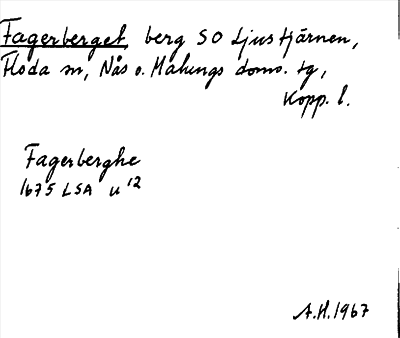 Fagerberget, berg SO Ljustjärnen,
Floda sn, Nås o. Malungs doms. tg,
Kopp. l.
Fagerberghe
1675 LSA u 12
A.H. 1967